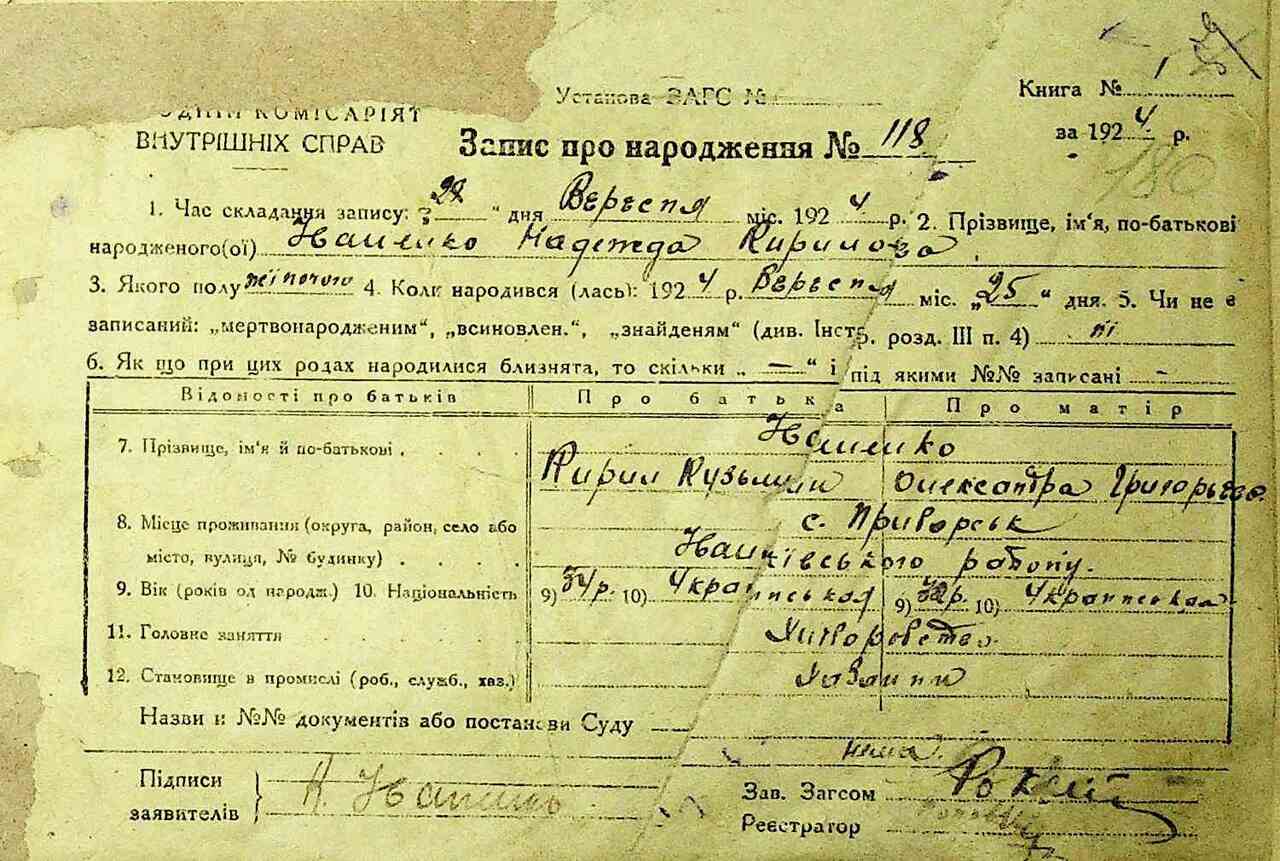 Установа ЗАГС №
Книга № 1
КОМІСАРІЯТ
ВНУТРІШНІХ СПРАВ
Запис про народження № 118
за 1924 р.
180
1. Час складання запису: „28“ дня Вересня міс. 1924 р. 2. Прізвище, ім'я, по-батькові
народженого(ої) Надежда Кирилова
3. Якого полу жіночого 4. Коли народився (лась): 1924 р. Вересня міс. „25“ дня. 5. Чи не є
записаний: „мертвонародженим“, „всиновлен.“, „знайденям“ (див. Інстр. розд. III п. 4) ні
6. Як що при цих родах народилися близнята, то скільки „ — “ і під якими №№ записані -
Відомості про батьків Про батька Про матір
7. Прізвище, ім'я й по-батькові .
Кирил Кузьмин Олександра Григорьева
8. Місце проживання (округа, район, село або с. Приворськ
місто, вулиця, № будинку) . району.
9. Вік (років од народж.) 10. Національність 9) 34 р. 10) Українська 9) р. 10) Українська
11. Головне заняття Хліборобство.
12. Становище в промислі (роб., служб., хаз.) Хазяини
Назви и №№ документів або постанови Суду —
нема.
Підписи
заявителів
Зав. Загсом
Реєстратор